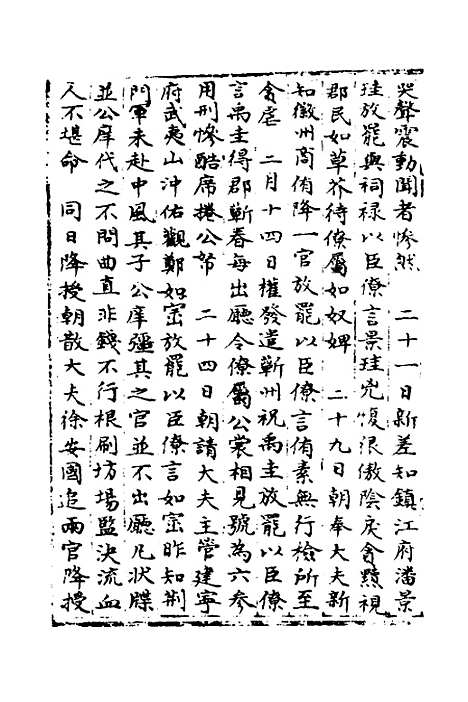 哭聲震動聞者慘然　二十一日新差知鎮江府潘景
珪放罷與祠禄以臣僚言景珪兇愎很傲陰戾貪黷視
郡民如草芥待僚屬如奴婢　二十九日朝奉大夫新
知徽州高侑降一官放罷以臣僚言侑素無行檢所至
貪虐　二月十四日權發遣蘄州祝禹圭放罷以臣僚
言禹圭得郡蘄春每出廳令僚屬公裳相見號為六參
用刑慘酷席捲公帑　二十四日朝請大夫主管建寧
府武夷山沖佑觀鄭如崈放罷以臣僚言如崈昨知荆
門軍未赴中風其子公庠彊其之官並不出廳凡狀牒
並公庠代之不問曲直非錢不行根刷坊場監決流血
人不堪命　同日降授朝散大夫徐安國追兩官降授